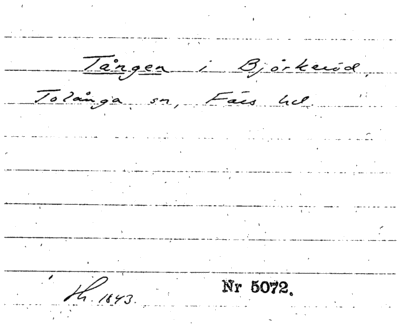 Tången i Björkeröd,
Tolånga sn, Färs hd
Th. 1843.
Nr 5072.